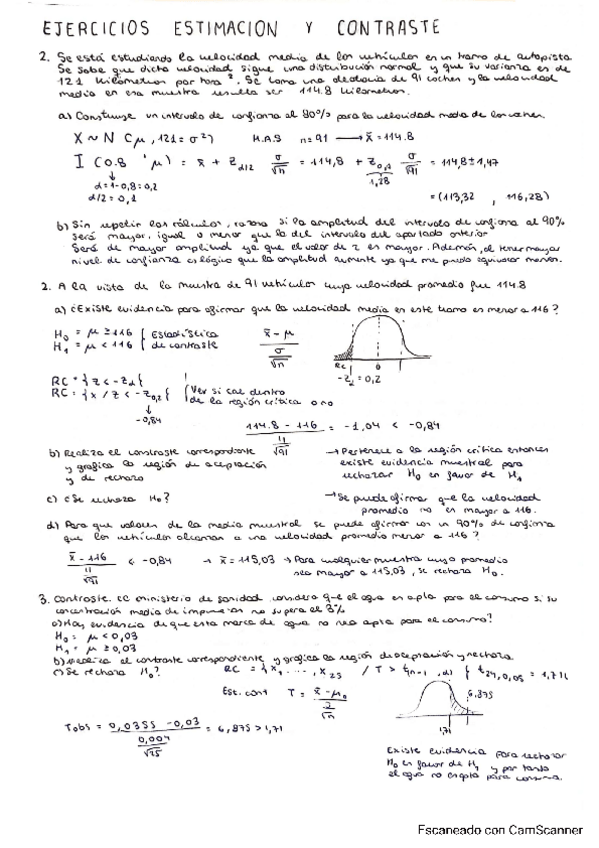 EJERCICIOS ESTIMACION Y CONTRASTE
2. Se está estudiando la velocidad media de los vehículos en un tramo de autopista.
Se sabe que dicha velocidad sigue una distribución normal y que su varianza es de
121 kilómetros por hora ². Se toma una de 91 coches y la velocidad
media en esa muestra resulta ser 114.8 kilometros.
a) Construye un intervalo de confianza al 80% para la velocidad media de los coches.
X ~ N (μ, 121 = σ²) M.A.S n=91 → x̄ = 114.8
I (0.8 ' μ) = x̄ ± Z α/2 σ/√n = 114,8 ± Z0,1 σ/√91 = 114,8 ± 1,47
α=1-0,8=0,2 1,28 = (113,32 , 116,28)
α/2 = 0,1
b) Sin repetir los cálculos, razona si la amplitud del intervalo de confianza al 90%
será mayor, igual o menor que la del intervalo del apartado anterior
Será de mayor amplitud ya que el valor de z es mayor. Además, al tener mayor
nivel de confianza es lógico que la amplitud aumente ya que me puedo equivocar menos.
2. A la vista de la muestra de 91 vehículos cuya velocidad promedio fue 114.8
a) ¿Existe evidencia para afirmar que la velocidad media en este tramo es menor a 116?
H₀ = μ ≥ 116 { Estadística x̄ - μ
H₁ = μ < 116 { de contraste σ/√n
RC 0
-Z = 0,2
RC = { Z < -Zα {
RC = { x / Z < -Z0,2 { (Ver si cae dentro
de la región crítica o no
-0,84
114.8 - 116 / 11/√91 = -1,04 < -0,84
b) Realiza el contraste correspondiente → Pertenece a la región crítica entonces
y grafica la región de aceptación existe evidencia muestral para
y de rechazo rechazar H₀ en favor de H₁
c) ¿Se rechaza H₀? → Se puede afirmar que la velocidad
promedio no es mayor a 116.
d) Para que valores de la media muestral se puede afirmar con un 90% de confianza
que los vehículos alcanzan a una velocidad promedio menor a 116?
x̄ - 116 / 11/√91 < -0,84 → x̄ = 115,03 → Para cualquier muestra cuyo promedio
sea mayor a 115,03, se rechaza H₀.
3. Contraste. El ministerio de sanidad considera que el agua es apta para el consumo si su
concentración media de impurezas no supera el 3%
a) Hay evidencia de que esta marca de agua no sea apta para el consumo?
H₀ = μ < 0,03
H₁ = μ ≥ 0,03
b) Realiza el contraste correspondiente y grafica la región de aceptación y rechazo
c) Se rechaza H₀? RC = { x₁ ..., x₂₅ / T > tn-1, α) { t24, 0,05 = 1,711
Est. cont T = x̄ - μ₀ / √n
6,875
1,71
Tobs = 0,0355 - 0,03 / 0,004/√25 = 6,875 > 1,71
Existe evidencia para rechazar
H₀ en favor de H₁ y por tanto
el agua no es apta para consumo.
Escaneado con CamScanner